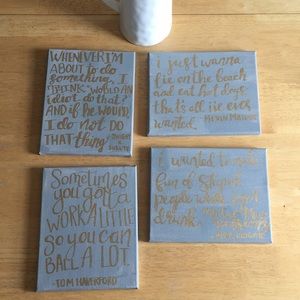 WHENEVER I'M
ABOUT to do
something, I
THINK "WOULD AN
idiot do that?"
AND if HE WOULD,
I do NOT DO
THAT thing
i just wanna
lie on the beach
and eat hot dogs.
that's all i've ever
wanted
KEVIN MALONE
Sometimes
you gotta
WORK A LITTLE
SO you CAN
BALL A LOT.
-TOM HAVERFORD
i wanted to make
fun of stupid
people while I got
drunk.